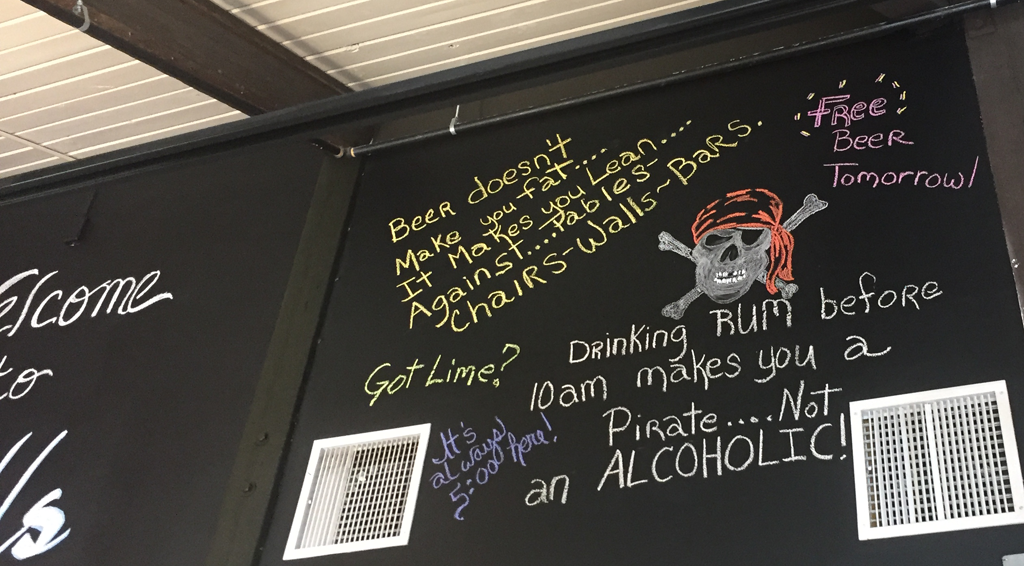 Beer doesn't
Make you fat....
It Makes you Lean....
Against....Tables-
Chairs-Walls~Bars.
Free
Beer
Tomorrow!
Got Lime?
It's
always
5:00 here!
Drinking RUM before
10am makes you a
Pirate....Not
an ALCOHOLIC!
elcome
to